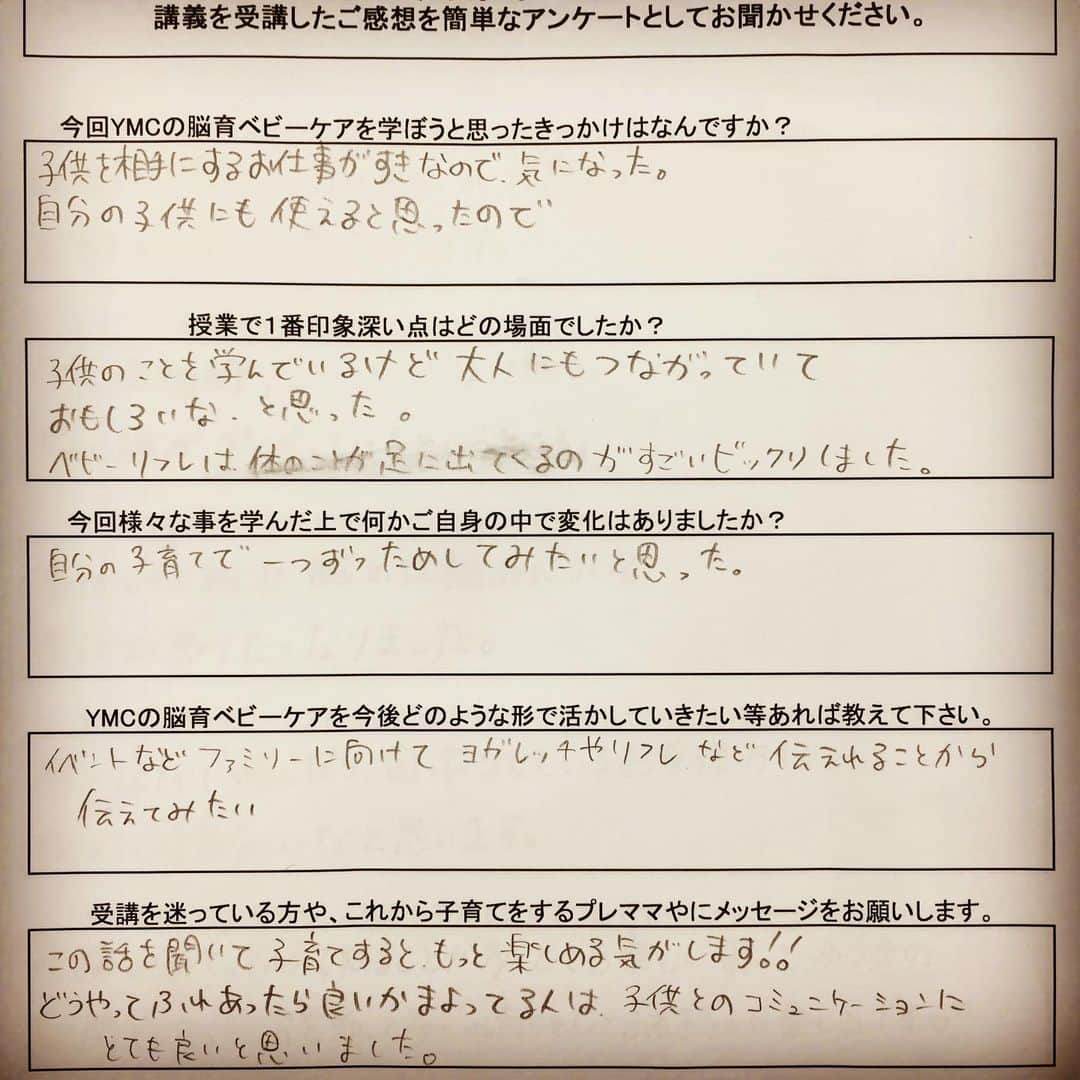 講義を受講したご感想を簡単なアンケートとしてお聞かせください。
今回YMCの脳育ベビーケアを学ぼうと思ったきっかけはなんですか？
子供を相手にするお仕事がすきなので、気になった。
自分の子供にも使えると思ったので
授業で１番印象深い点はどの場面でしたか？
子供のことを学んでいるけど大人にもつながっていて
おもしろいな、と思った。
ベビーリフレは、体のことが足に出てくるのがすごいビックリしました。
今回様々な事を学んだ上で何かご自身の中で変化はありましたか？
自分の子育てで一つずつためしてみたいと思った。
YMCの脳育ベビーケアを今後どのような形で活かしていきたい等あれば教えて下さい。
イベントなどファミリーに向けてヨガレッチやリフレなど伝えれることから
伝えてみたい
受講を迷っている方や、これから子育てをするプレママやにメッセージをお願いします。
この話を聞いて子育てすると、もっと楽しめる気がします!!
どうやってふれあったら良いかまよってる人は、子供とのコミュニケーションに
とても良いと思いました。